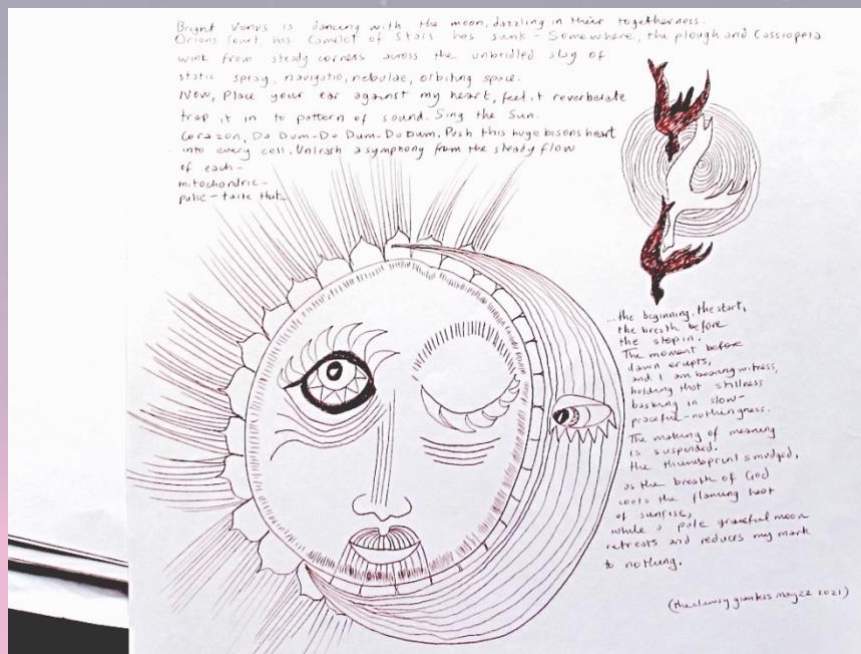 Bright Venus is dancing with the moon, dazzling in their togetherness.
Orions court, his Camelot of Stars has sunk - Somewhere, the plough and Cassiopera
wink from steady corners across the unbridled slag of
static spray, navigatio, nebulae, orbiting space.
Now, Place your ear against my heart, feel it reverberate
trap it in to pattern of sound. Sing the Sun.
Corazon, Da Dum-Da Dum-Da Dum, Push this huge bisons heart
into every cell. Unleash a symphony from the steady flow
of each-
mitochondric-
pulic - taste that..
...the beginning, the start,
the breath before
the step in.
The moment before
dawn erupts,
and I am bearing witness,
holding that stillness
basking in slow-
peaceful-nothingness.
The making of meaning
is suspended.
the thumbprint smudged,
as the breath of God
cools the flaming heat
of sunrise,
while a pale grateful moon
retreats and reduces my mark
to nothing.
(the clumsy May 22 2021)